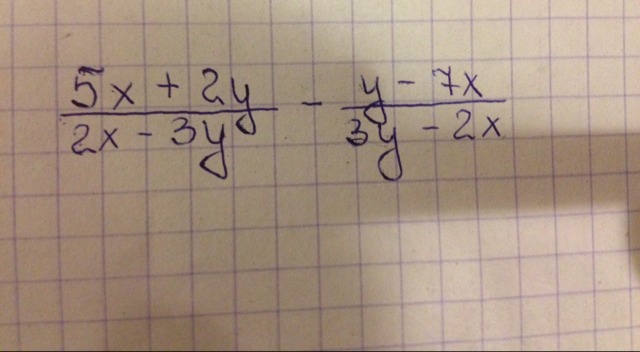 5x + 2y / 2x - 3y - y - 7x / 3y - 2x